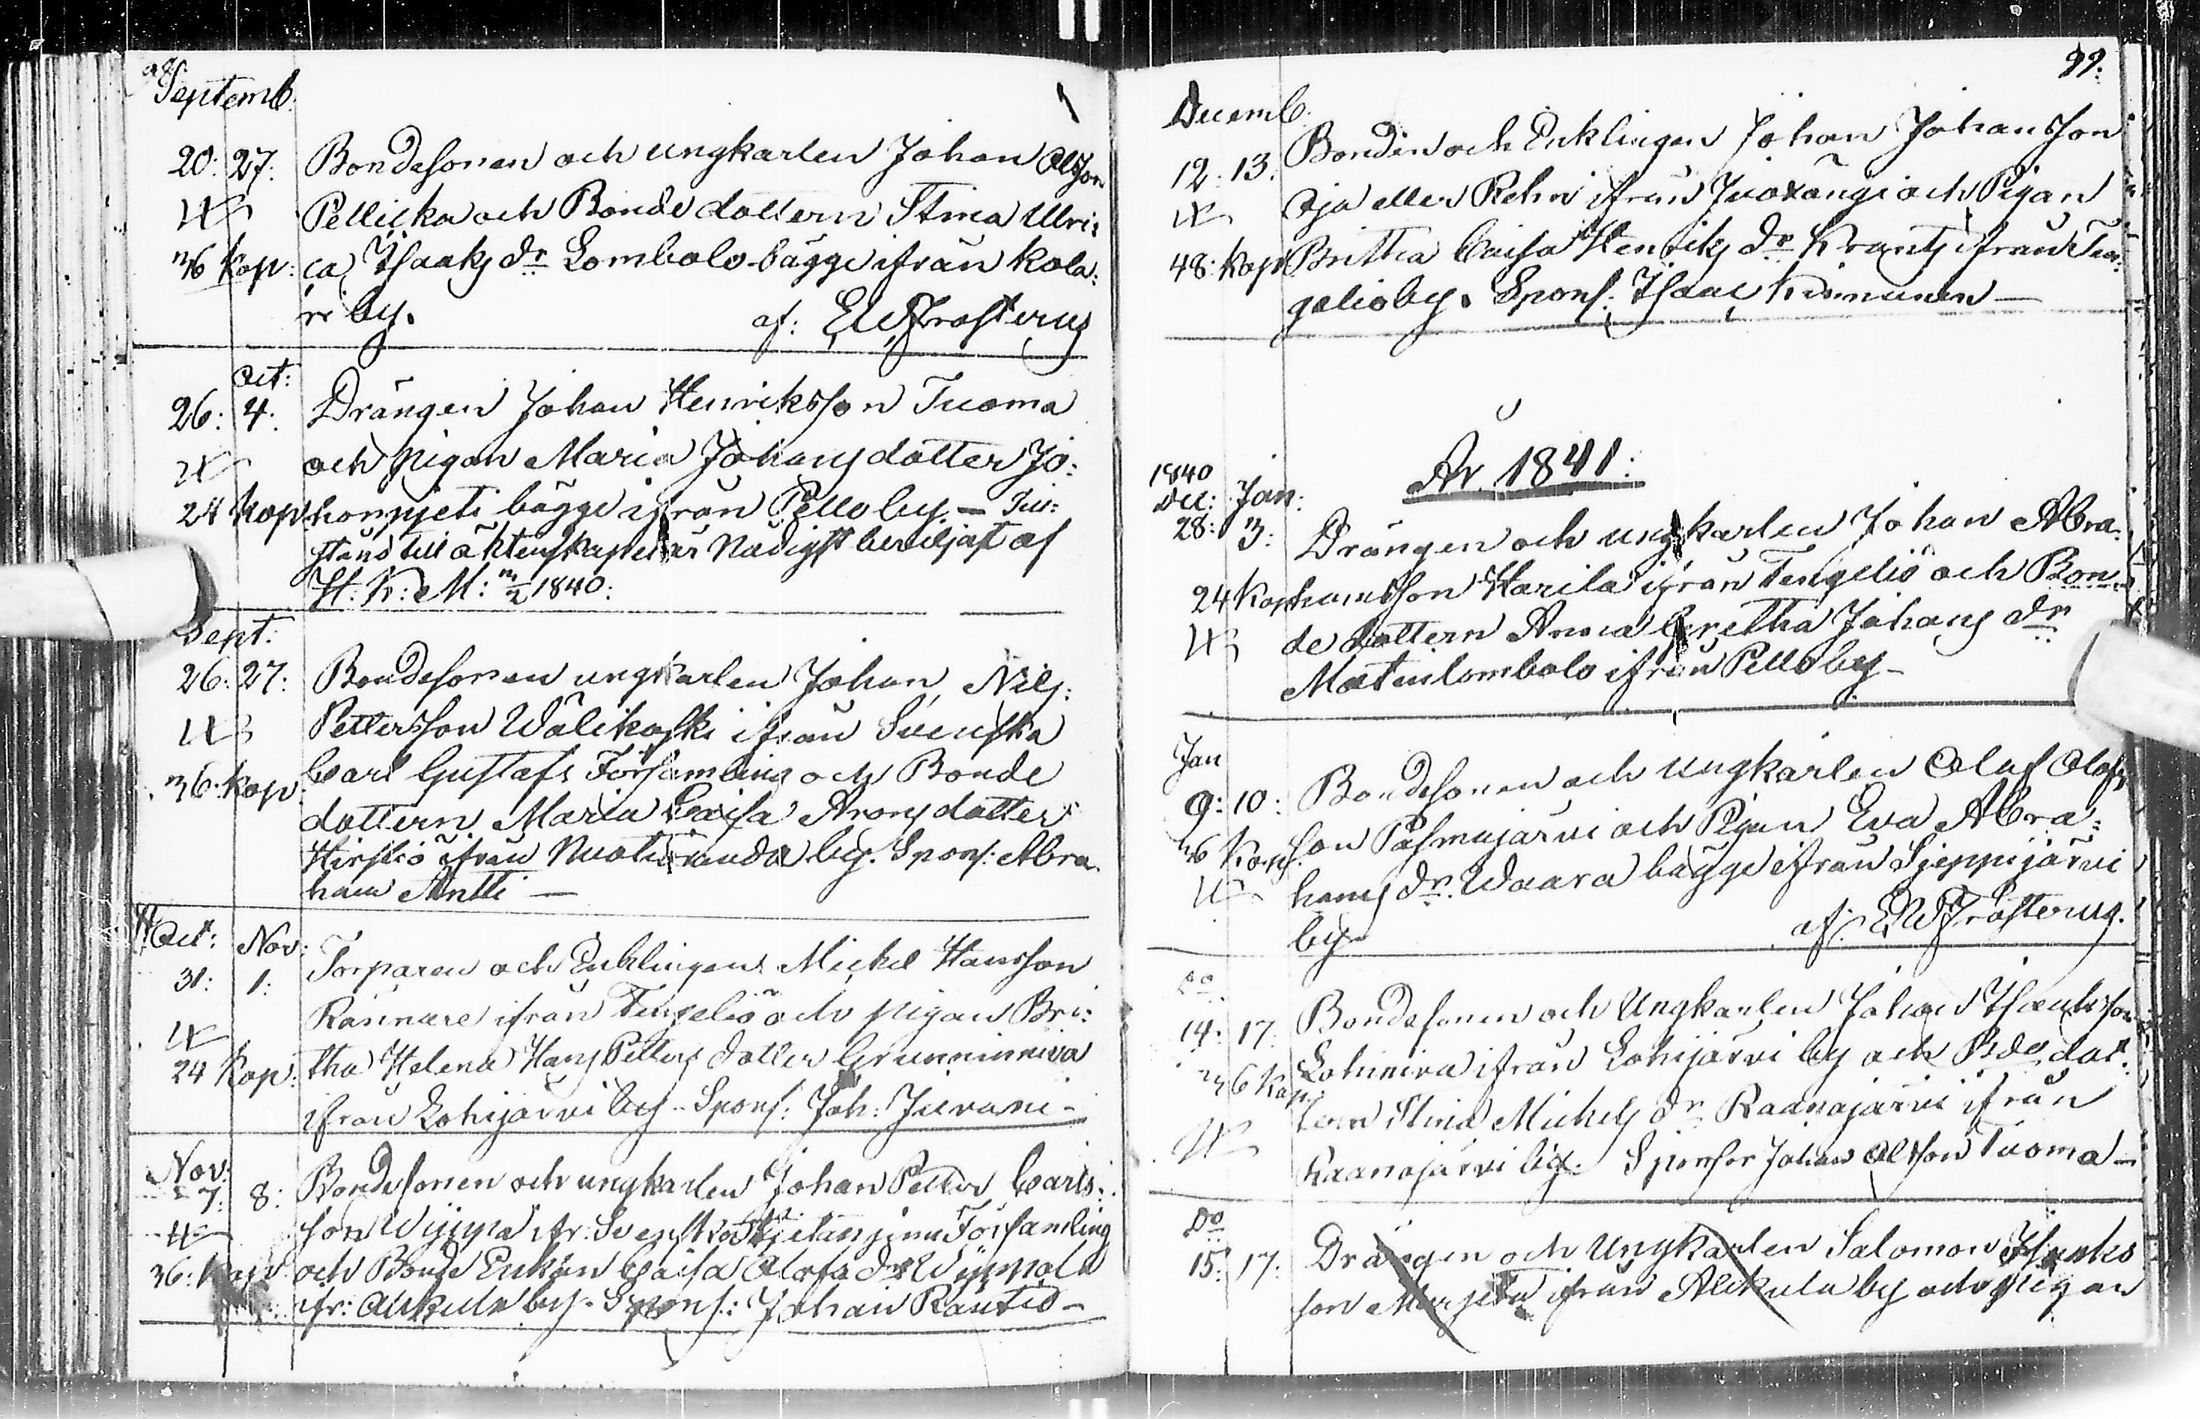 98.
Septemb.
20: 27: Bondesonen och ungkarlen Johan Olsson
Pellicka och Bonde dottern Stina Ulri:
36 Kop: ca Isaaks dr Lombolo bägge ifrån Kola:
ri by. af: EWFrosterus
Oct:
26: 4: Drängen Johan Henriksson Tuoma
och pigan Maria Johans dotter Jo:
24 Kop honpjeti bägge ifrån Pello by. – Till:
stånd till äktenskapet är Nådigst beviljat af
H: K: M: 1840:
Sept:
26: 27: Bondesonen ungkarlen Johan Nils
Pettersson Wälikoski ifrån Svenska
36 Kop Carl Gustafs Församling och Bonde
dottern Maria Caisa Arons dotter
ifrån by. Spons: Abra
ham Antti –
Oct: Nov:
31: 1: Torparen och Enklingen Michel Hansson
Kännäre ifrån Tengeliö och pigan Bri:
24 Kop: tha Helena Hans Petters dotter
ifrån Lohijärvi by – Spons: Joh: Juvani –
Nov:
7: 8: Bondesonen och ungkarlen Johan Petter Carls:
son ifr: Svenska Församling
36: Kop och Bonde Enkan Caisa Olofs dr
ifr: Alkula by. Spons: Johan Rautio –
99:
Decemb.
12: 13: Bonden och Enklingen Johan Johansson
Oja eller Rehn ifrån Juoxangi och Pigan
48: Kop Britta Caisa Henriks dr Krants ifrån Ten:
geliö by. Spons: Isaac Kinnunen –
År 1841:
1840
Dec: Jan:
28: 3: Drängen och ungkarlen Johan Abra:
24 Kop hamsson Harila ifrån Tengeliö och Bon
de dottern Anna Gretha Johans dr
Matinlombolo ifrån Pello by –
Jan
9: 10: Bondesonen och Ungkarlen Olof Olofs
36 Kop. son Pasmajärvi och Pigan Eva Abra:
hams dr. Waara bägge ifrån Sieppijärvi
by – af: EWFrosterus.
Do
14: 17: Bondesonen och Ungkarlen Johan Isaksson
36 Kop Lohiniva ifrån Lohijärvi by och Bde dot:
tern Stina Michels dr Raanojärvi ifrån
Raanojärvi by. Sponsor Johan Olsson Tuoma –
Do
15: 17: Drängen och Ungkarlen Salomon Isaks
son Marjeta ifrån Alkula by och pigan